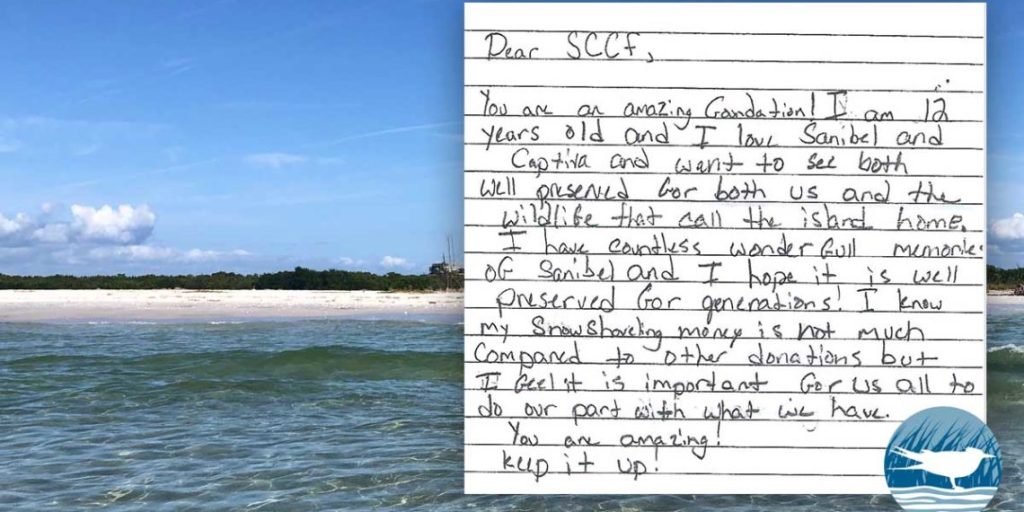 Dear SCCF,
You are an amazing foundation! I am 12
years old and I love Sanibel and
Captiva and want to see both
well preserved for both us and the
wildlife that call the island home.
I have countless wonderfull memories
of Sanibel and I hope it is well
preserved for generations! I know
my Snowshoveling money is not much
compared to other donations but
I feel it is important for us all to
do our part with what we have.
You are amazing!
keep it up!